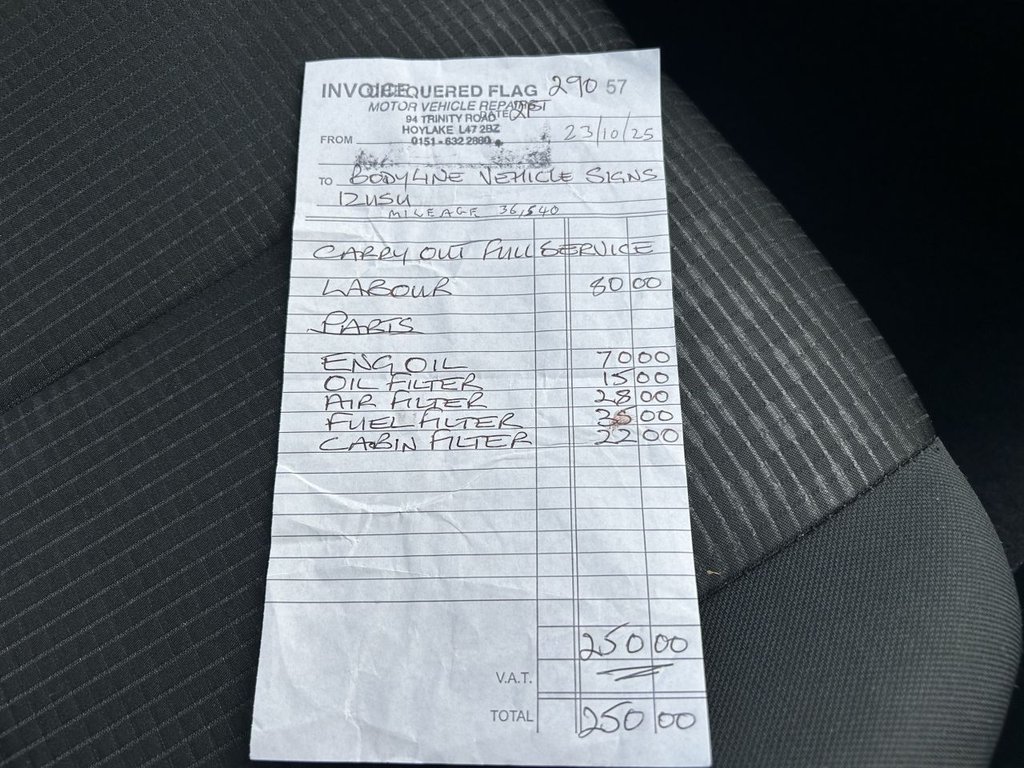 INVOICE CHEQUERED FLAG 290 57
MOTOR VEHICLE REPAIRS
94 TRINITY ROAD DATE
HOYLAKE L47 2BZ 23/10/25
FROM 0151-632 2880
TO BODYLINE VEHICLE SIGNS
IZUSU
MILEAGE 36,540
CARRY OUT FULL SERVICE
LABOUR 80 00
PARTS
ENG OIL 70 00
OIL FILTER 15 00
AIR FILTER 28 00
FUEL FILTER 35 00
CABIN FILTER 22 00
250 00
V.A.T.
TOTAL 250 00